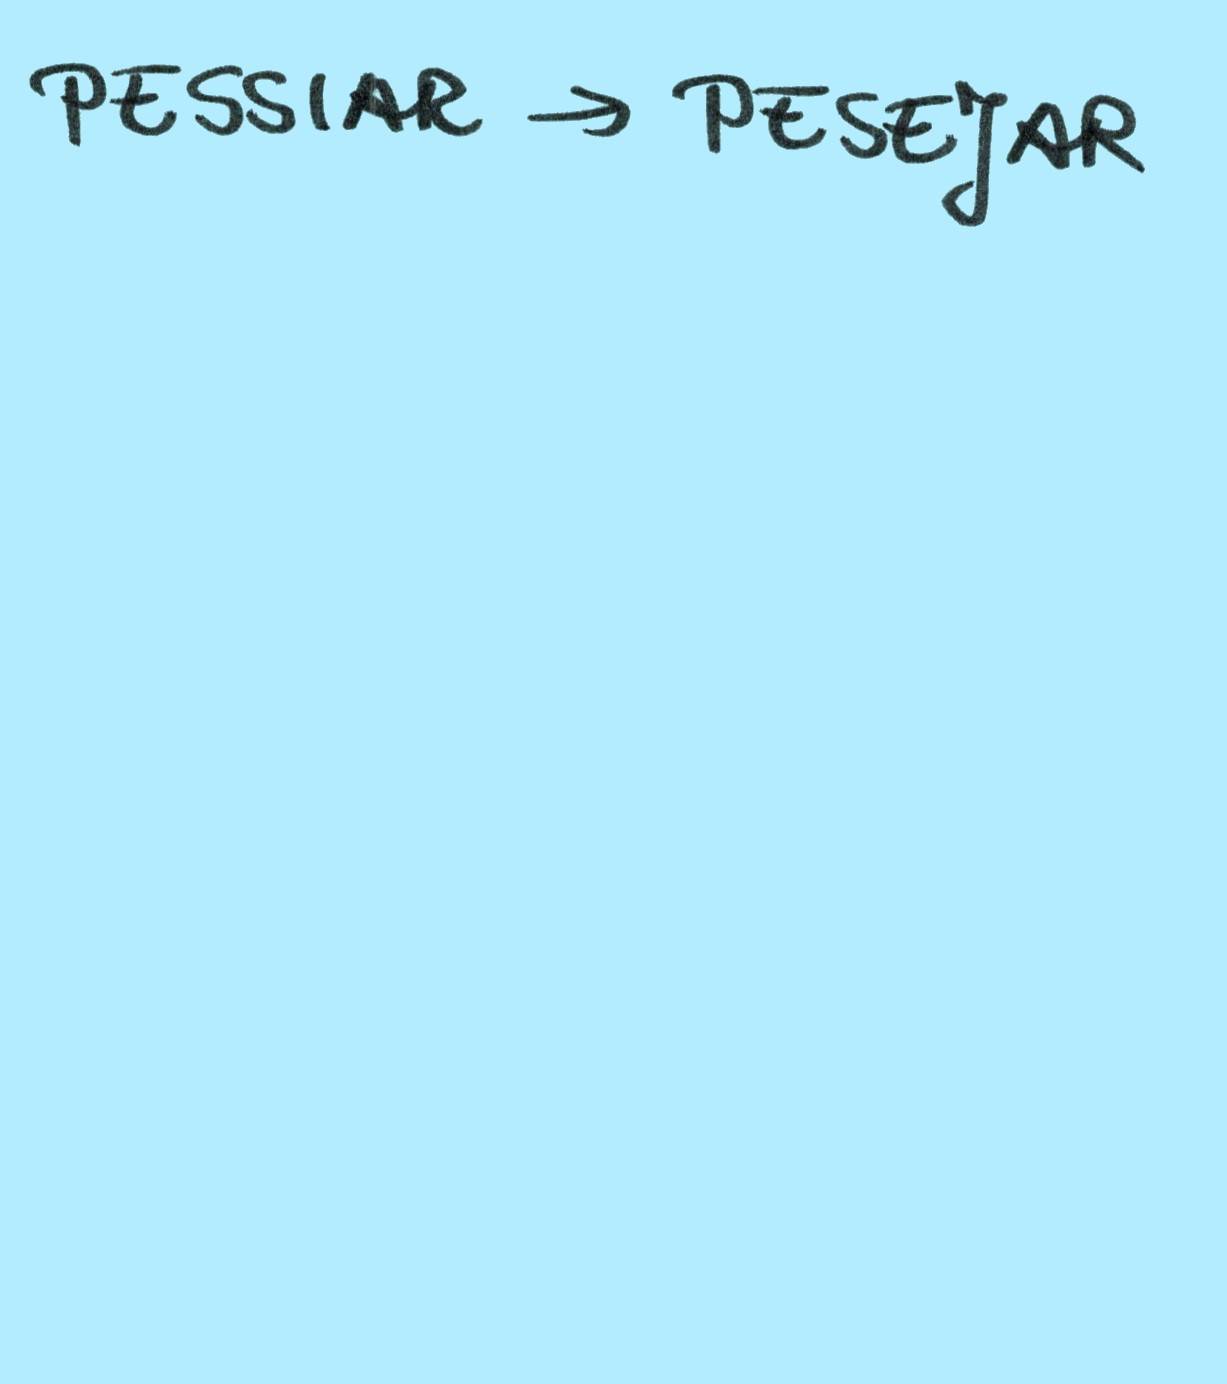 PESSIAR → PESEJAR